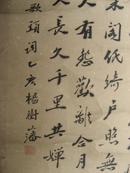 朱閣低綺戶照無
人有悲歡離合月
人長久千里共嬋
歌頭詞乙亥楊樹藩